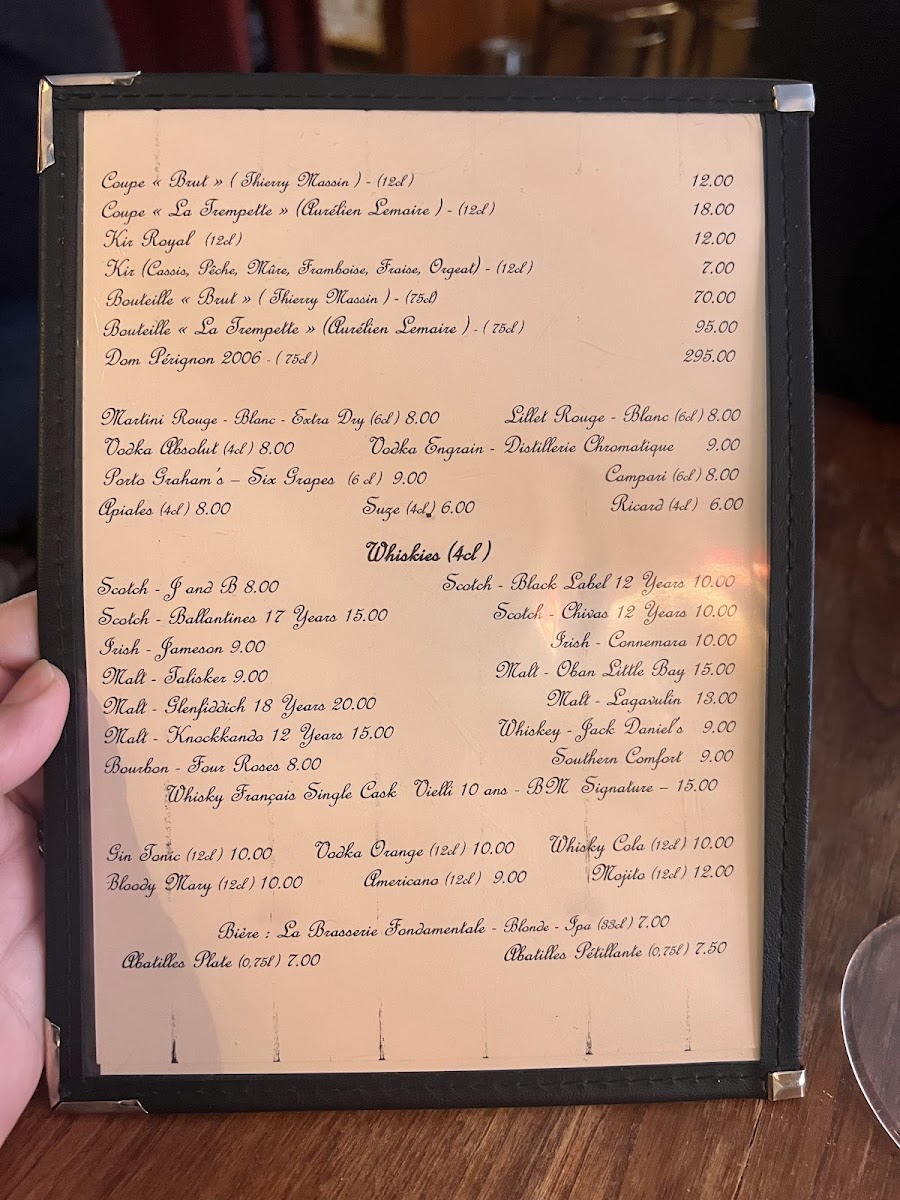 Coupe « Brut » ( Thierry Massin ) - (12cl) 12.00
Coupe « La Trempette » (Aurélien Lemaire ) - (12cl) 18.00
Kir Royal (12cl) 12.00
Kir (Cassis, Pêche, Mûre, Framboise, Fraise, Orgeat) - (12cl) 7.00
Bouteille « Brut » ( Thierry Massin ) - (75cl) 70.00
Bouteille « La Trempette » (Aurélien Lemaire ) - ( 75cl) 95.00
Dom Pérignon 2006 - ( 75cl) 295.00
Martini Rouge - Blanc - Extra Dry (6cl) 8.00 Lillet Rouge - Blanc (6cl) 8.00
Vodka Absolut (4cl) 8.00 Vodka Engrain - Distillerie Chromatique 9.00
Porto Graham's – Six Grapes (6 cl) 9.00 Campari (6cl) 8.00
Apiales (4cl) 8.00 Suze (4cl) 6.00 Ricard (4cl) 6.00
Whiskies (4cl)
Scotch - J and B 8.00 Scotch - Black Label 12 Years 10.00
Scotch - Ballantines 17 Years 15.00 Scotch - Chivas 12 Years 10.00
Irish - Jameson 9.00 Irish - Connemara 10.00
Malt - Talisker 9.00 Malt - Oban Little Bay 15.00
Malt - Glenfiddich 18 Years 20.00 Malt - Lagavulin 13.00
Malt - Knockkando 12 Years 15.00 Whiskey - Jack Daniel's 9.00
Bourbon - Four Roses 8.00 Southern Comfort 9.00
Whisky Français Single Cask Vielli 10 ans - BM Signature – 15.00
Gin Tonic (12cl) 10.00 Vodka Orange (12cl) 10.00 Whisky Cola (12cl) 10.00
Bloody Mary (12cl) 10.00 Americano (12cl) 9.00 Mojito (12cl) 12.00
Bière : La Brasserie Fondamentale - Blonde - Ipa (33cl) 7.00
Abatilles Plate (0,75l) 7.00 Abatilles Pétillante (0,75l) 7.50